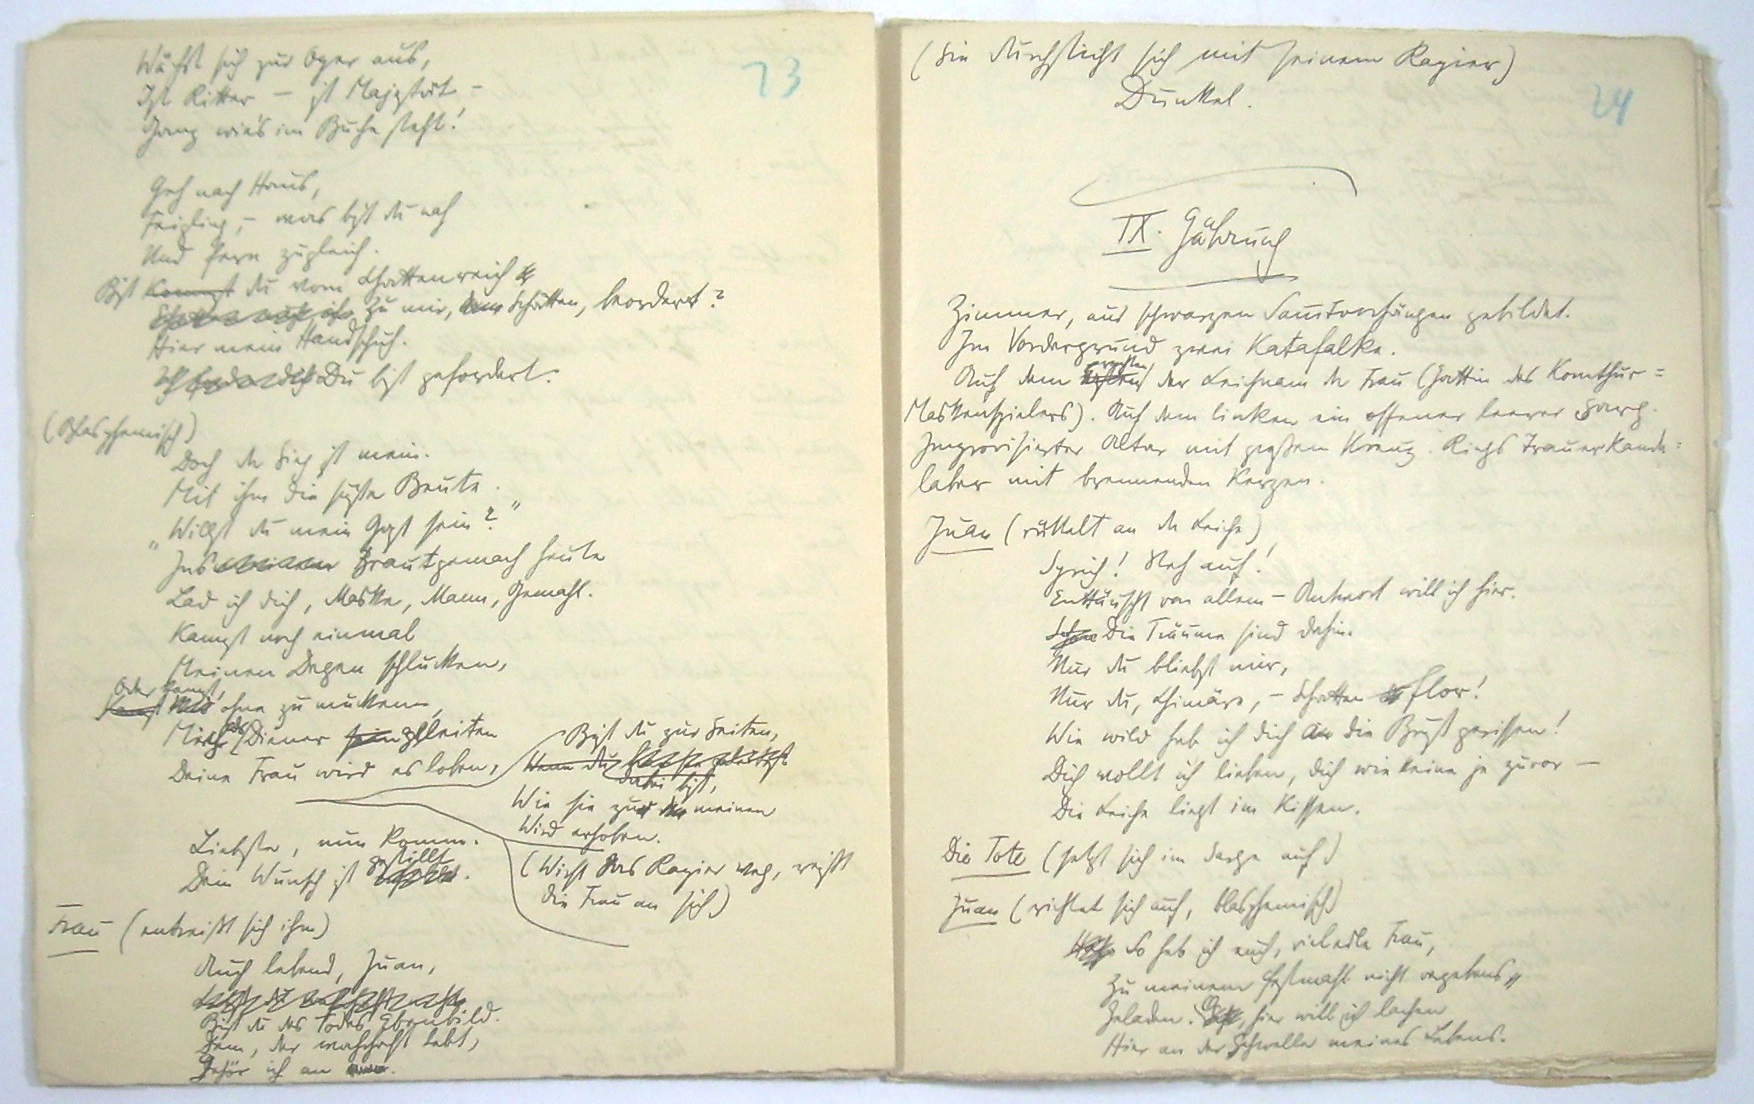 23
Wächst sich zur Oper aus,
Ist Ritter – ist Majestät –
Ganz wie's im Buche steht!
Geh nach Haus,
Feigling, – was bist du nah
Und fern zugleich.
Bist du vom Schattenreich
zu mir, Schatten, beordert?
Hier mein Handschuh.
Du bist gefordert.
(Blasphemisch)
Doch der Sieg ist mein.
Mit ihm die süße Beute.
„Willst du mein Gast sein?"
Ins Brautgemach heute
Lad ich dich, Maske, Mann, Gemahl.
Kannst noch einmal
Meinen Degen schlucken,
Oder kannst,
ohne zu mucken,
Diener
Deine Frau wird es loben,
Bist du zur Seiten,
dabei bist,
Wie sie zur meinen
Wird erhoben.
(Wirft das Rapier weg, reißt
die Frau an sich)
Liebste, nun komm.
Dein Wunsch ist gestillt.
Frau (entreißt sich ihm)
Auch lebend, Juan,
Bist du des Todes Ebenbild.
Dem, der wahrhaft lebt,
Gehör ich an.
(Sie durchsticht sich mit seinem Rapier)
Dunkel.
24
IX. Gährung
Zimmer, aus schwarzen Samtvorhängen gebildet.
Im Vordergrund zwei Katafalke.
Auf dem ersten der Leichnam der Frau (Gattin des Komthur=
Maskenspielers). Auf dem linken ein offener leerer Sarg.
Improvisierter Altar mit großem Kreuz. Rings Trauerkande=
laber mit brennenden Kerzen.
Juan (rüttelt an der Leiche)
Sprich! Steh auf!
Enttäuscht von allem – Antwort will ich hier.
Die Träume sind dahin.
Nur du bliebst mir,
Nur du, Chimäre, – Schatten Flor!
Wie wild hab ich dich an die Brust gerissen!
Dich wollt ich lieben, dich wie keine je zuvor –
Die Leiche liegt im Kissen.
Die Tote (setzt sich im Sarge auf)
Juan (richtet sich auf, blasphemisch)
So hab ich euch, vieledle Frau,
Zu meinem Festmahl nicht vergebens
Geladen. hier will ich lachen
Hier an der Schwelle meines Lebens.